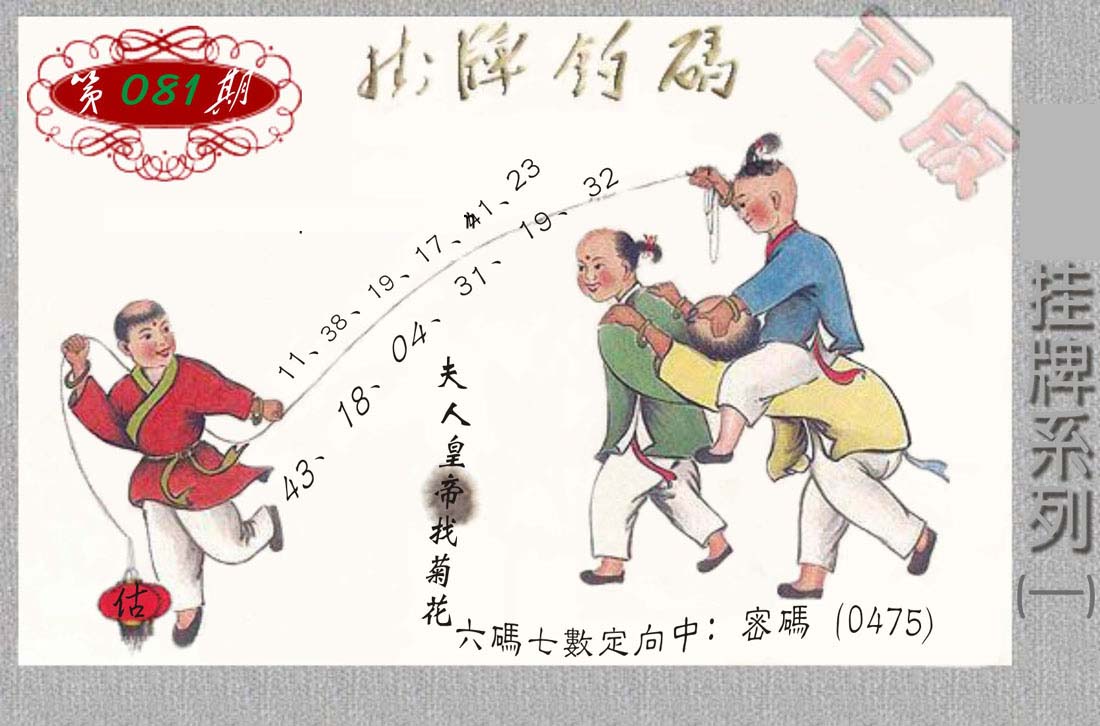 第081期
掛牌钓碼
正版
11、38、19、17、41、23
43、18、04、31、19、32
夫人皇帝找菊花
估
六碼七數定向中：密碼 (0475)
挂牌系列(一)